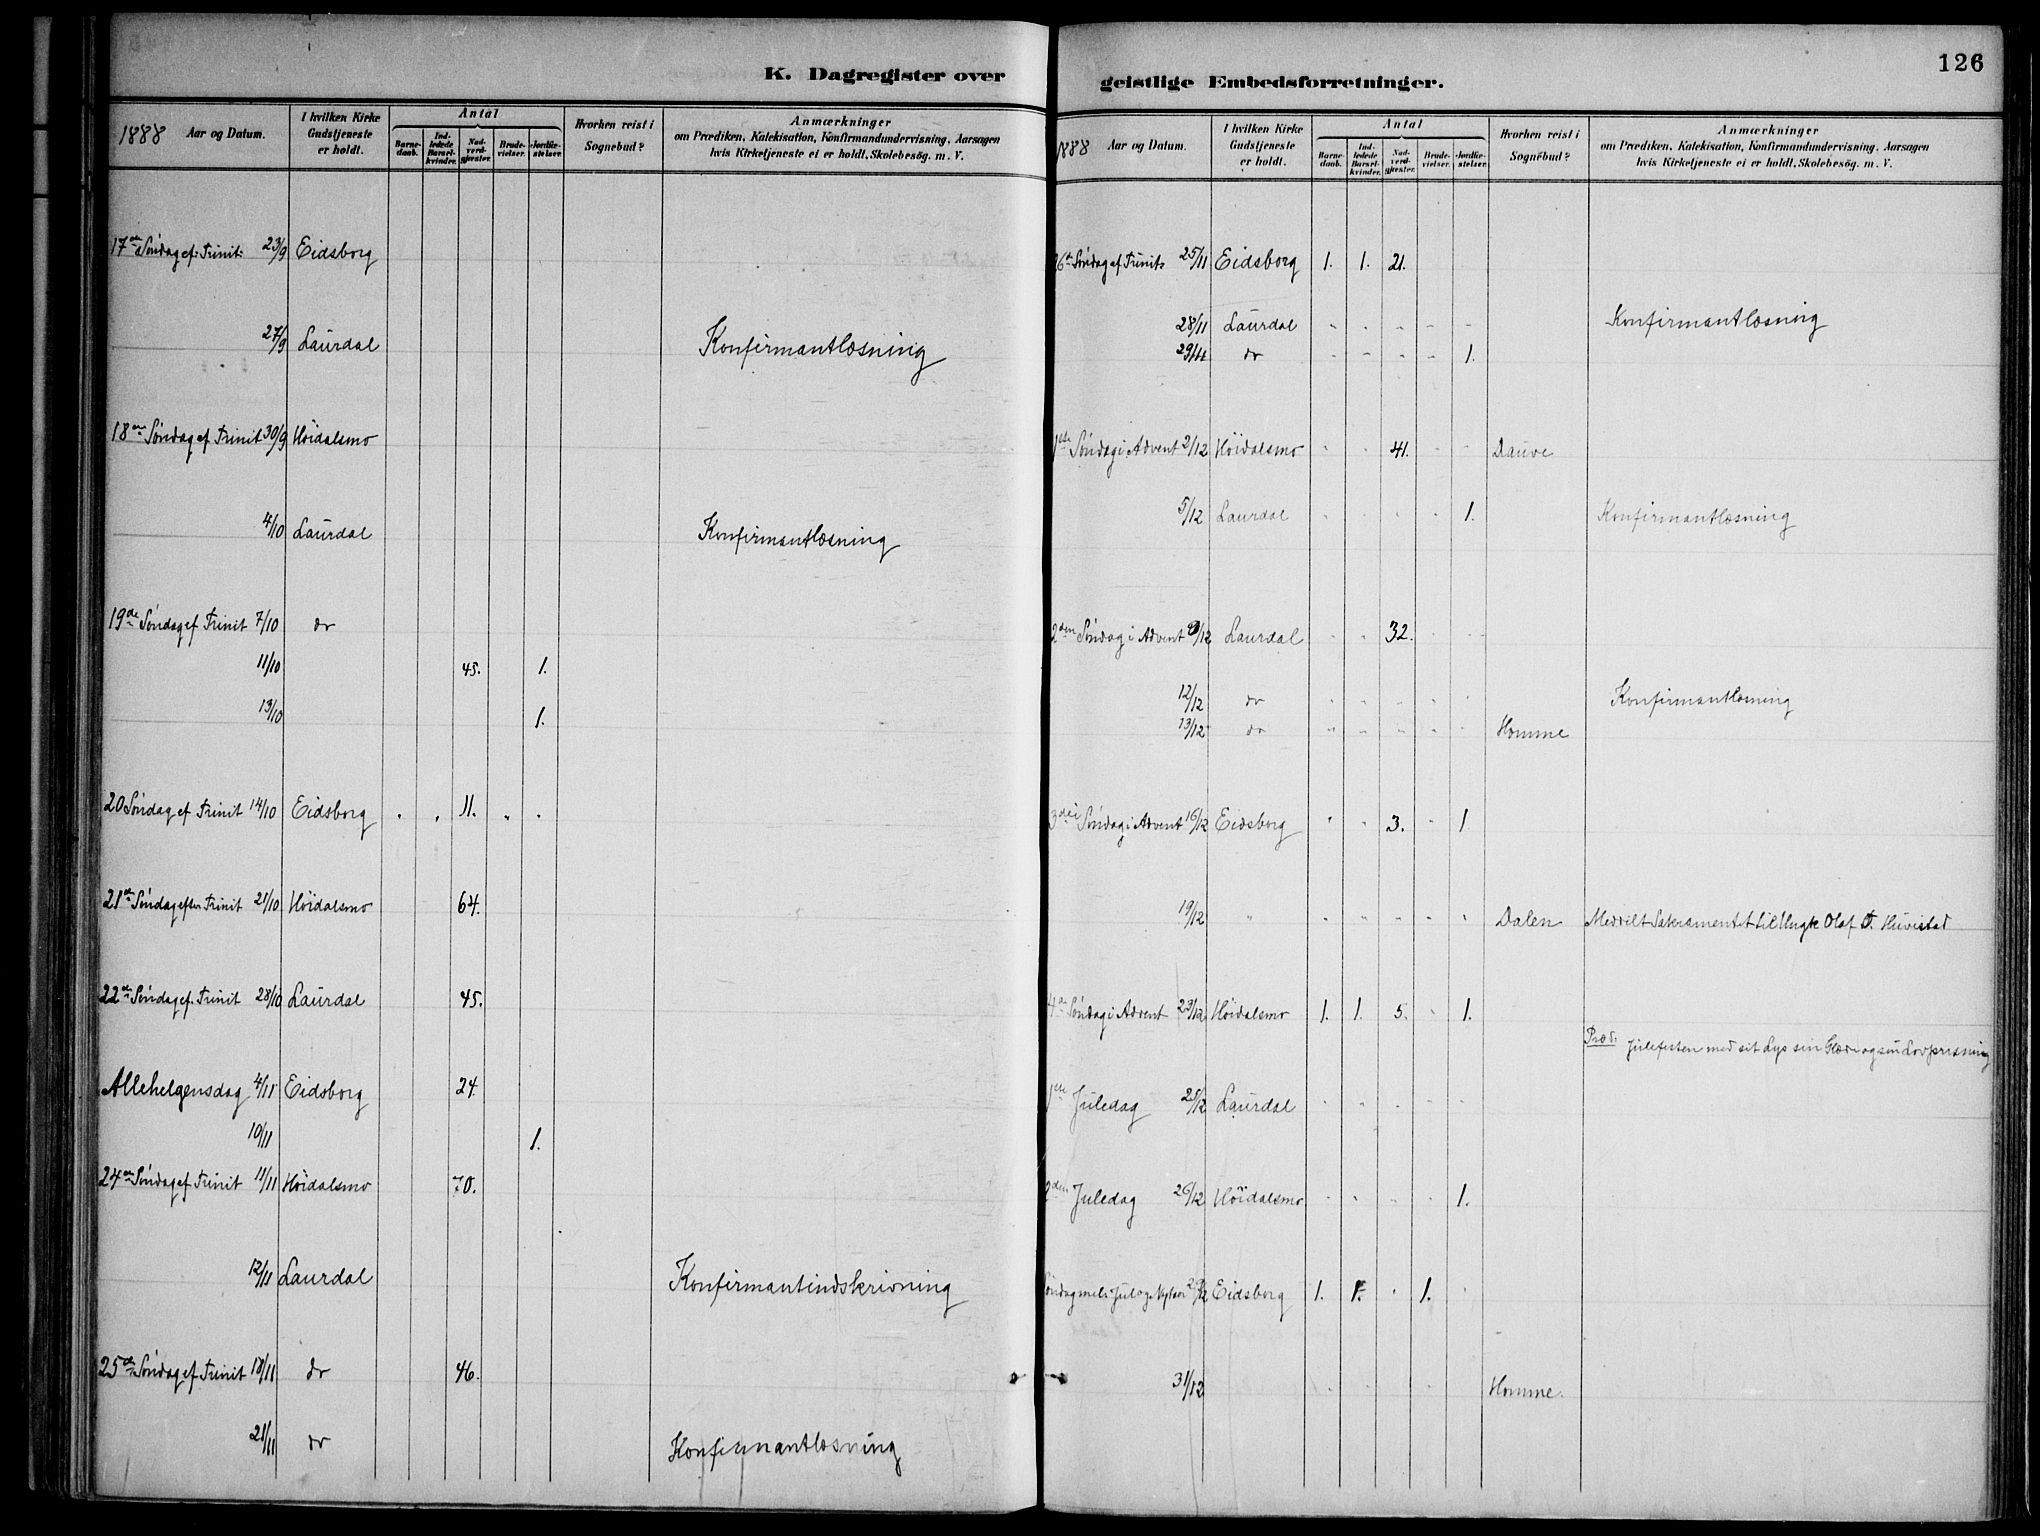 K. Dagregister over
1888 Aar og Datum. I hvilken Kirke Gudstjeneste er holdt. Antal Barnedaab. Indledede Barselkvinder. Nadverdgjester. Brudevielser. Jordfæstelser. Hvorhen reist i Sognebud? Anmærkninger om Prædiken, Katekisation, Konfirmandundervisning, Aarsagen hvis Kirketjeneste ei er holdt, Skolebesøg. m. V.
17de Søndag ef: Trinit: 23/9 Eidsborg
27/9 Laurdal Konfirmantlæsning
18de Søndag ef Trinit 30/9 Höidalsmo
4/10 Laurdal Konfirmantlæsning
19de Søndag ef Trinit 7/10 do
11/10 45. 1.
13/10 1.
20 Søndag ef Trinit 14/10 Eidsborg " " 11. " "
21de Søndag efter Trinit 21/10 Höidalsmo 64.
22de Søndag ef. Trinit 28/10 Laurdal 45.
Allehelgensdag 4/11 Eidsborg 24.
10/11 1.
24de Søndag ef Trinit 11/11 Höidalsmo 70.
12/11 Laurdal Konfirmantindskrivning
25de Søndag ef Trinit 18/11 do 46.
21/11 do Konfirmantlæsning
geistlige Embedsforretninger.
126
1888 Aar og Datum. I hvilken Kirke Gudstjeneste er holdt. Antal Barnedaab. Indledede Barselkvinder. Nadverdgjester. Brudevielser. Jordfæstelser. Hvorhen reist i Sognebud? Anmærkninger om Prædiken, Katekisation, Konfirmandundervisning, Aarsagen hvis Kirketjeneste ei er holdt, Skolebesøg. m. V.
26de Søndag ef Trinit: 25/11 Eidsborg 1. 1. 21.
28/11 Laurdal " " " " " Konfirmantlæsning
29/11 do " " " " 1.
1ste Søndag i Advent 2/12 Höidalsmo " " 41. " " Dauve
5/12 Laurdal " " " " 1. Konfirmantlæsning
2den Søndag i Advent 9/12 Laurdal " " 32. " "
12/12 do " " " " " Konfirmantlæsning
13/12 do " " " " " Homme
3die Søndag i Advent 16/12 Eidsborg " " 3. " 1
19/12 " " " " " " Dalen Meddelt Sakramentet til Olaf Huvestad
4de Søndag i Advent 23/12 Höidalsmo 1. 1. 5. " 1.
Præd: Julefesten med sit Lys sin Glæde og sin Lovprisning
1ste Juledag 25/12 Laurdal " " " " "
2den Juledag 26/12 Höidalsmo " " " " 1.
Søndag mel: Jul og Nytaar 29/12 Eidsborg 1. 1. " 1. "
31/12 " " " " Homme.